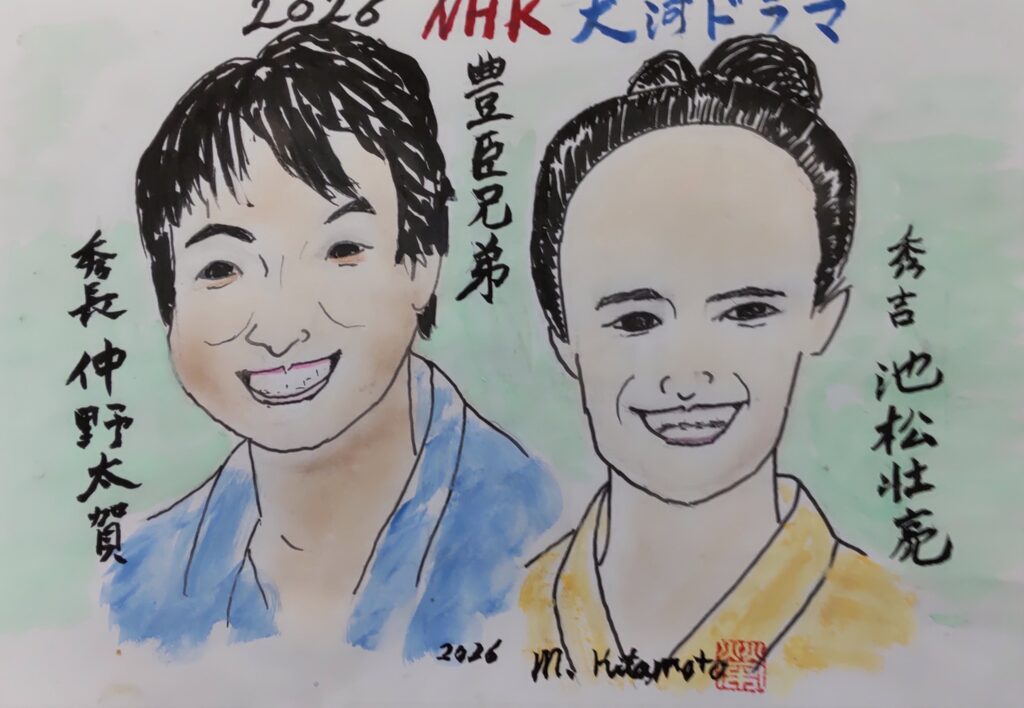 2026 NHK 大河ドラマ
豊臣兄弟
秀長 仲野太賀
秀吉 池松壮亮
2026 M. Kitamoto